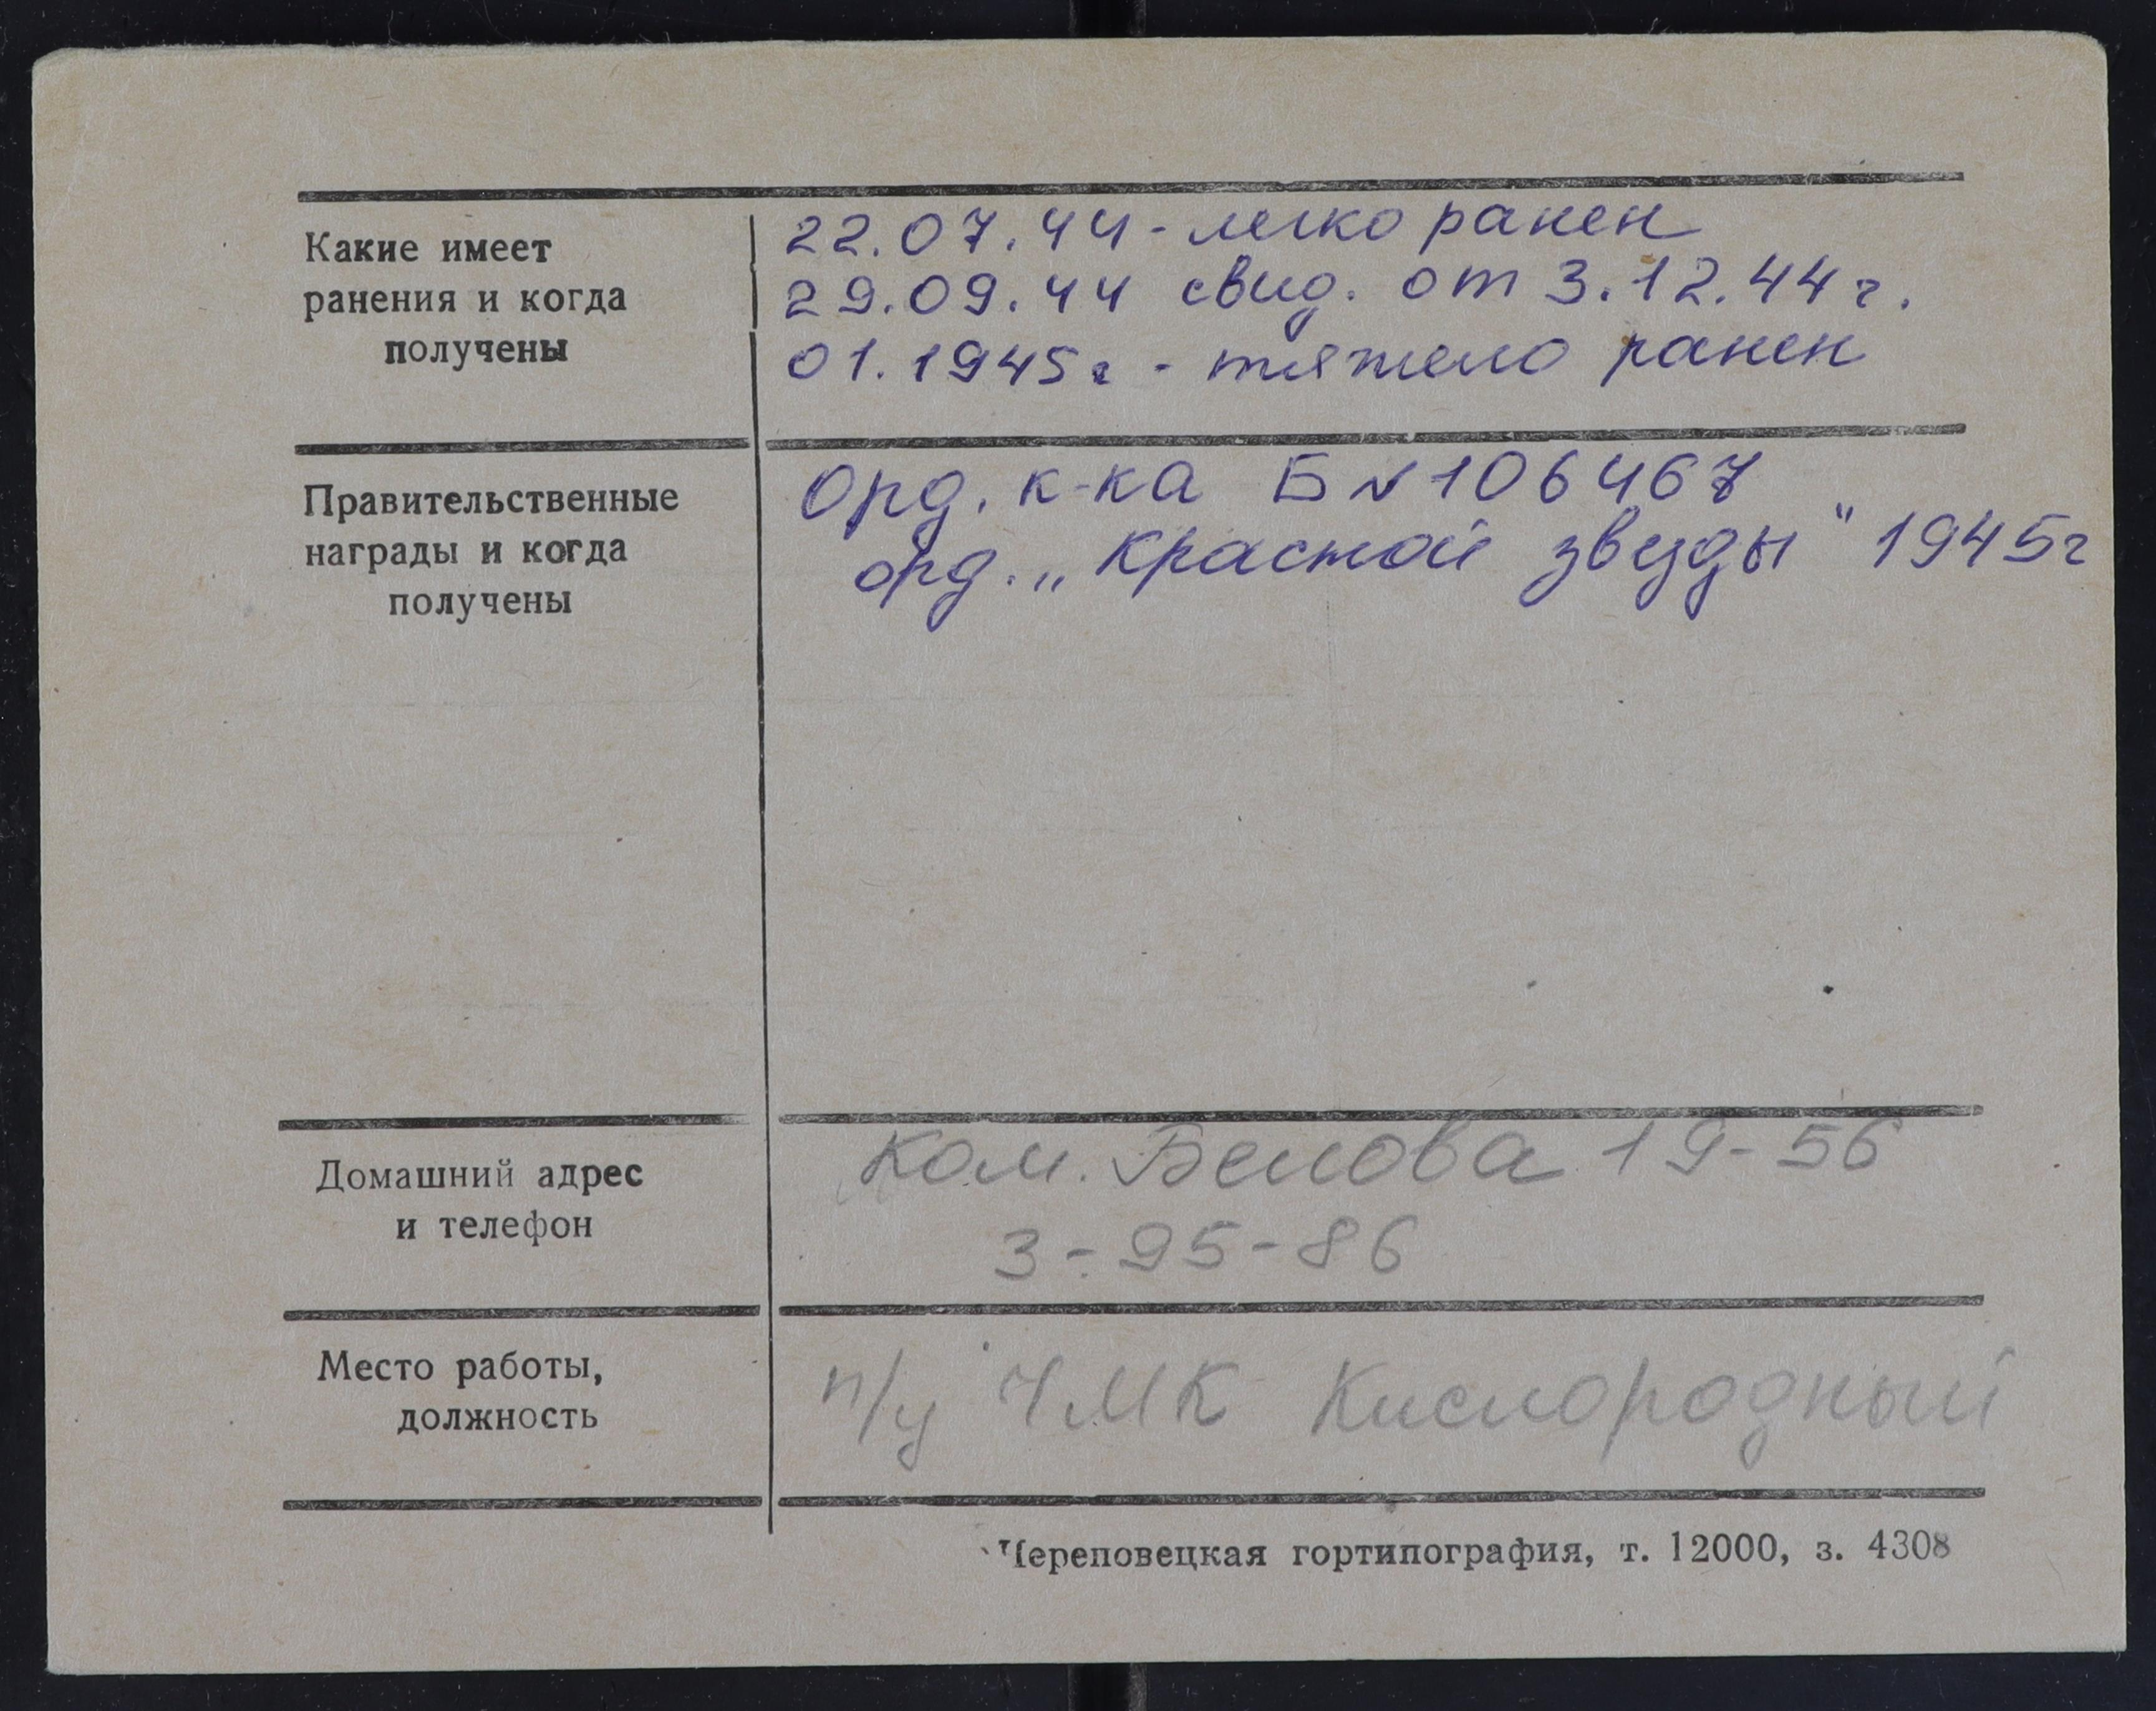 Какие имеет
ранения и когда
получены
22.07.44 - легко ранен
29.09.44 свид. от 3.12.44 г.
01.1945г - тяжело ранен
Правительственные
награды и когда
получены
Орд. к-ка Б № 106467
орд. „Красной звезды" 1945г
Домашний адрес
и телефон
Ком. Белова 19-56
3-95-86
Место работы,
должность
п/у ЧМК Кислородный
Череповецкая гортипография, т. 12000, з. 4308